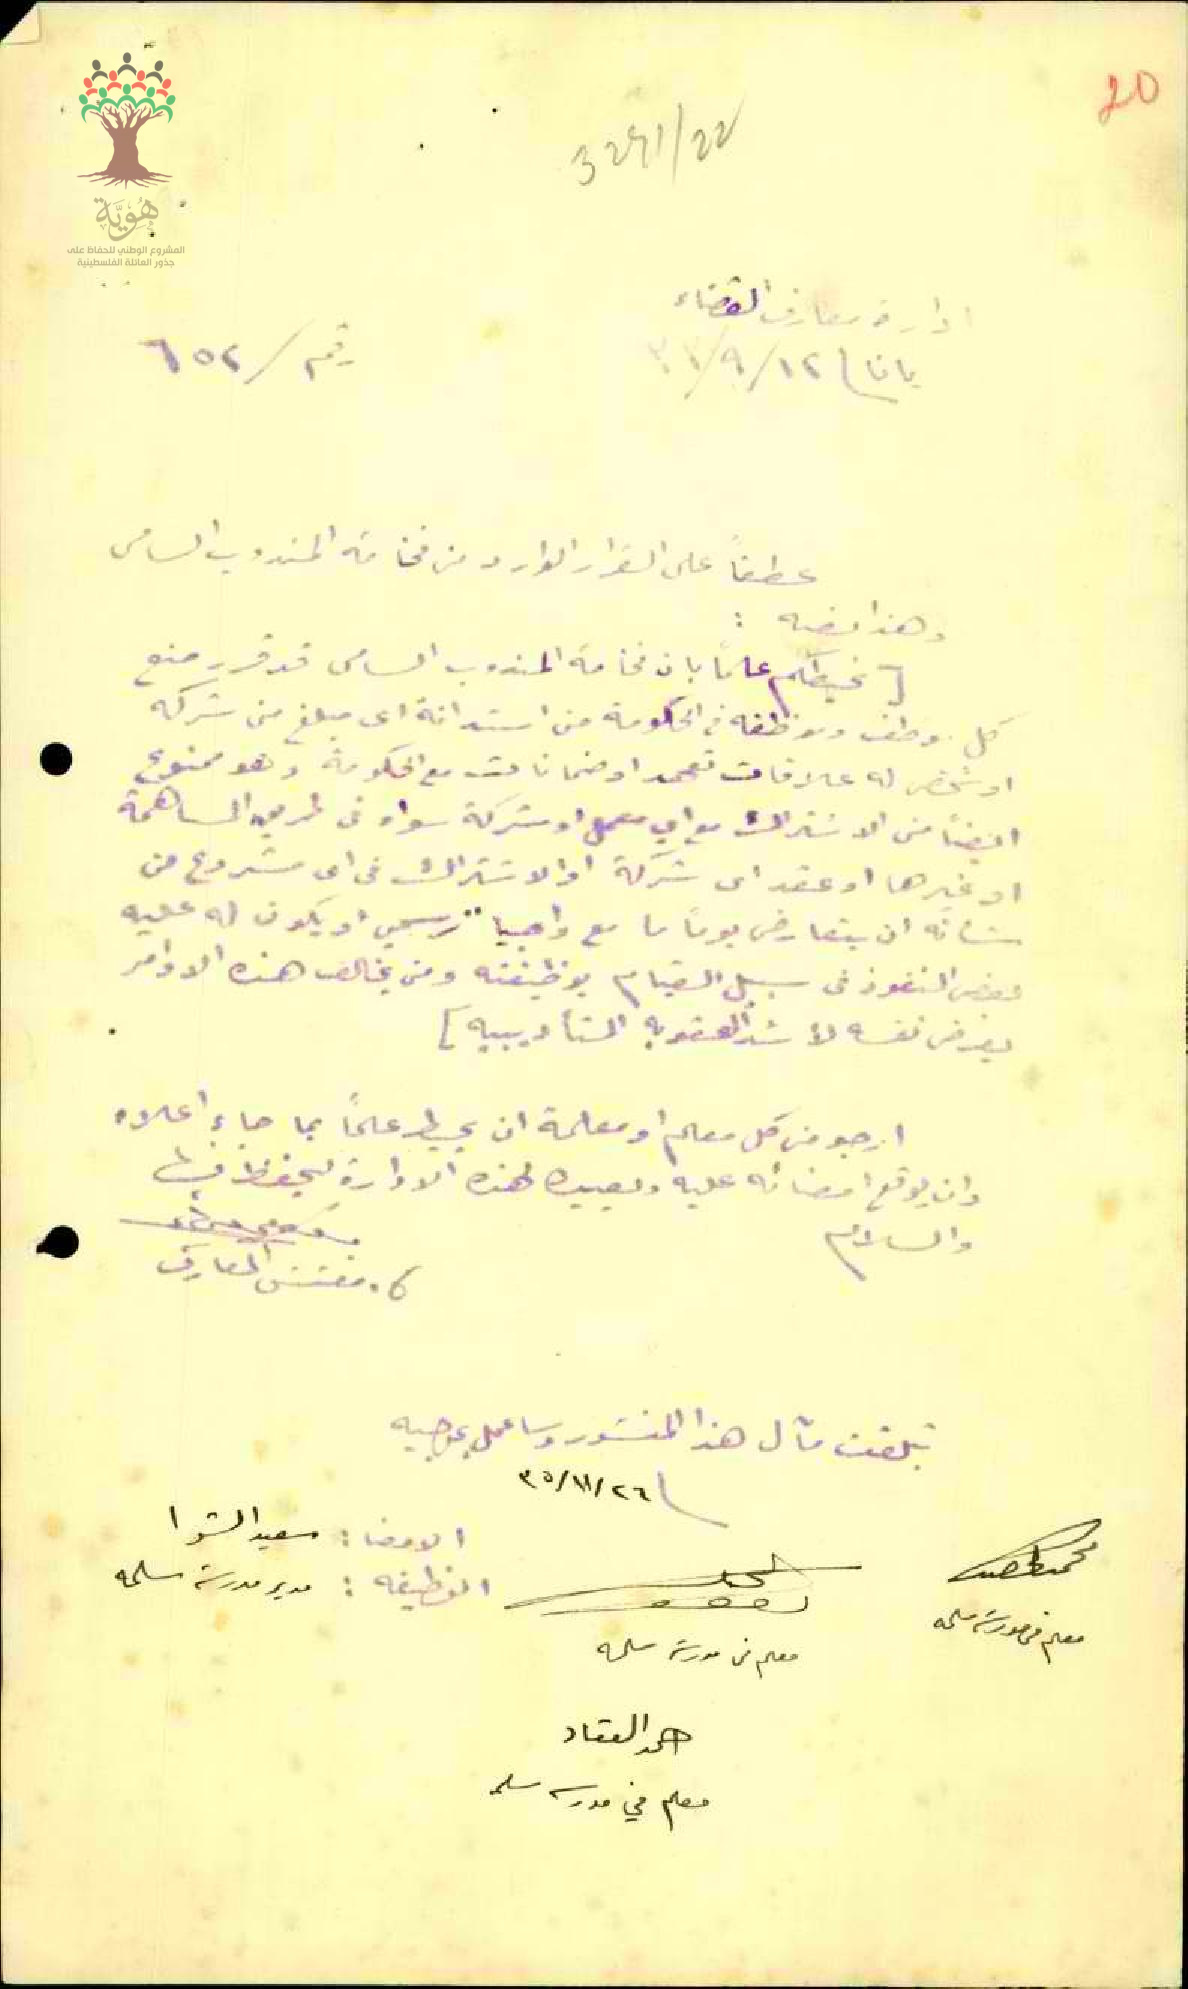 20
3241/22
هُوِيَّة
المشروع الوطني للحفاظ على
جذور العائلة الفلسطينية
ادارة معارف القضاء
يافا ١٢/٩/
رقم / ٦٥٢
عطفاً على القرار الوارد من فخامة المندوب السامي
وهذا نصه :
[ نحيطكم علماً بان فخامة المندوب السامي قد قرر منع
كل موظف وموظفه في الحكومة من استدانة اى مبلغ من شركه
او شخص له علاقات تعهد او ضمانات مع الحكومة وهو ممنوع
ايضاً من الاشتراك مع اي معمل او شركة سواء في طريق المساهمة
او غيرها او عقد اى شركة او الاشتراك في اى مشروع من
شأنه ان يتعارض يوماً ما مع واجب رسمي او يكون له عليه
بعض النفوذ في سبيل القيام بوظيفته ومن يخالف هذه الاوامر
يعرض نفسه لاشد العقوبه التأديبيه ]
ارجو من كل معلم او معلمة ان يحيط علماً بما جاء اعلاه
وان يوقع امضائه عليه ويعيده لهذه الادارة ليحفظ فيها
والسلام
مفتش المعارف
تبلغت مآل هذا المنشور وساعمل بموجبه
٣٥/١١/٢٦
الامضا : سعيد الشوا
الوظيفه : مدير مدرسة سلمه
معلم في مدرسة سلمه
معلم في مدرسة سلمه
احمد العقاد
معلم في مدرسة سلمه